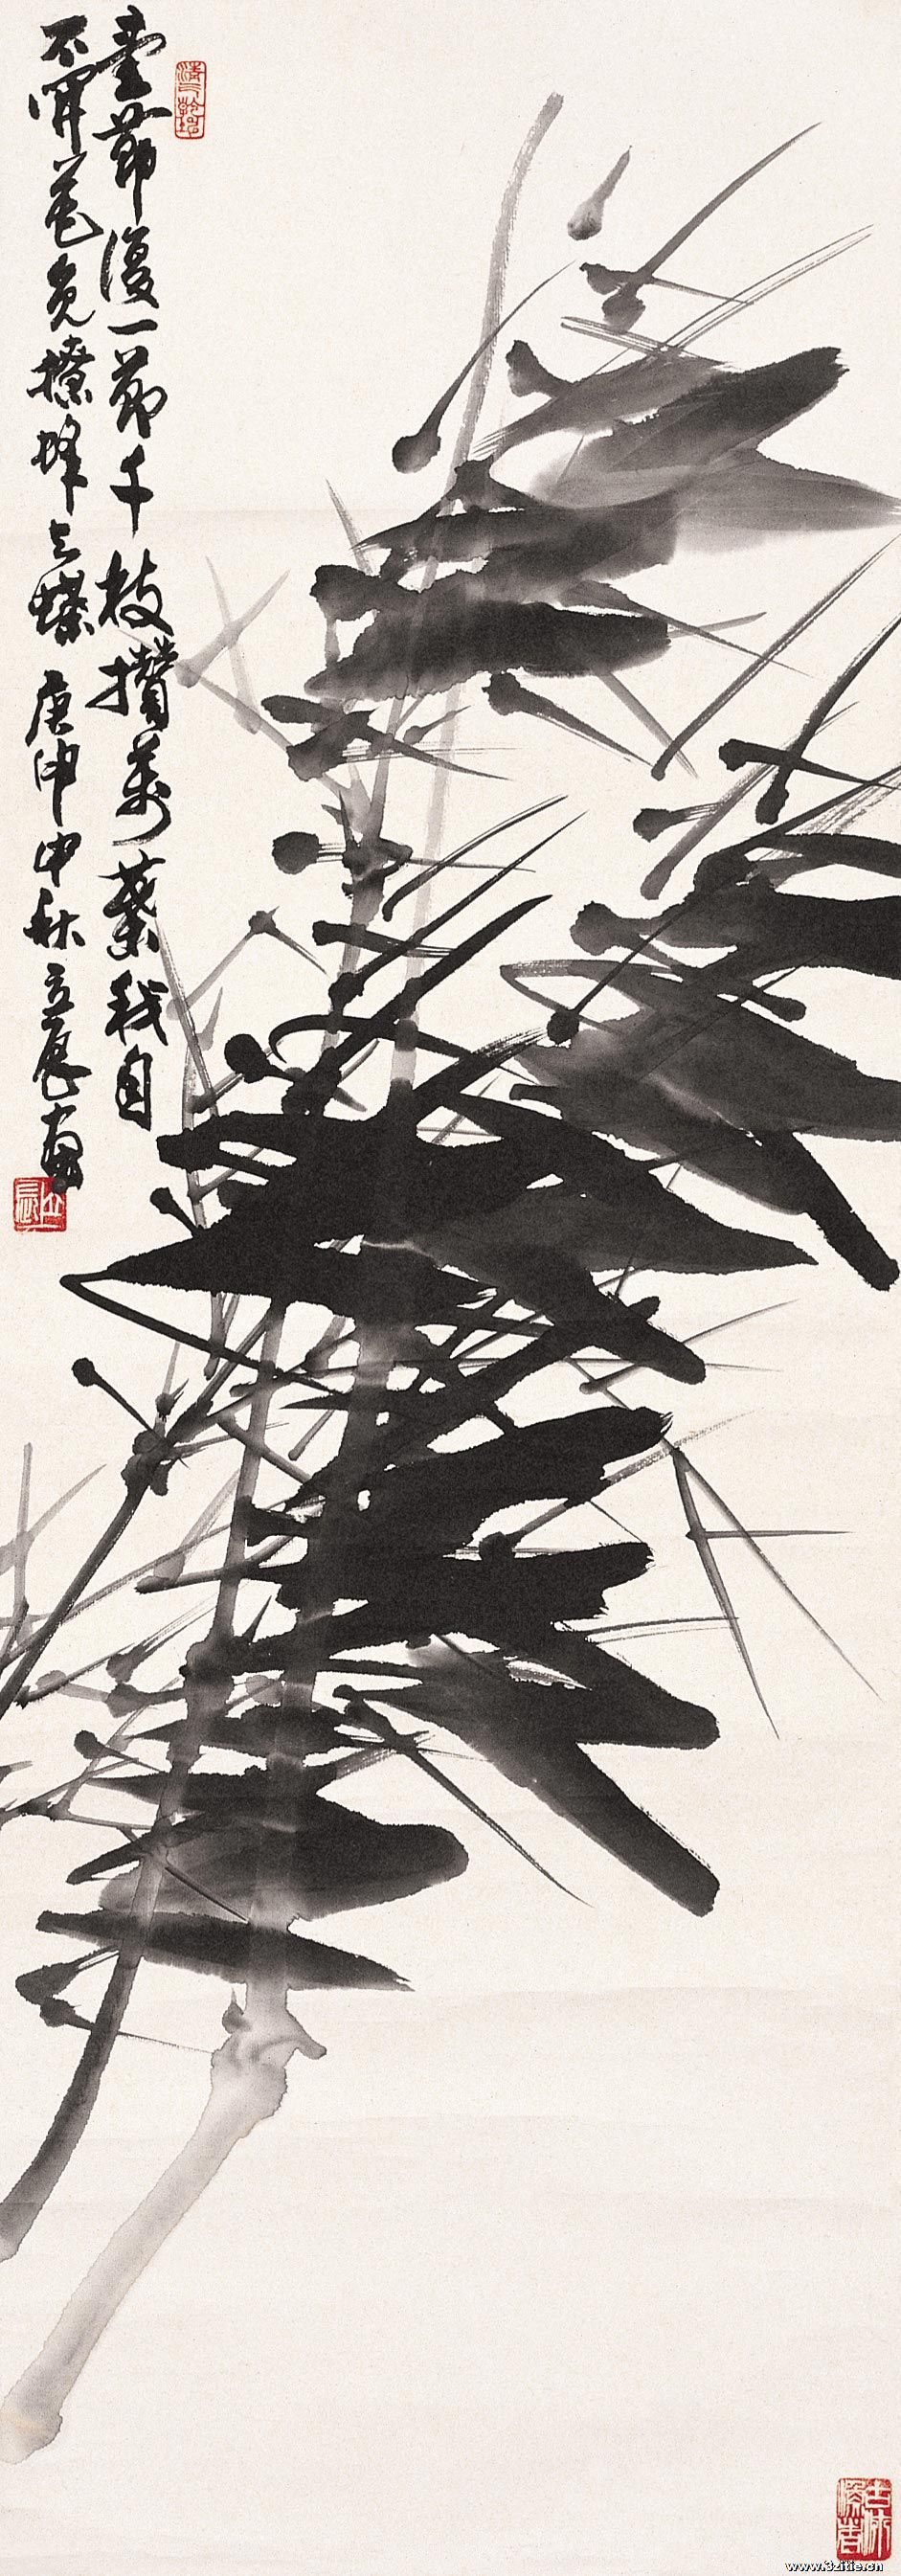 壹節復一節千枝攢萬葉我自
不開花免撩蜂与蝶 庚申中秋立辰畫
www.3zitie.cn